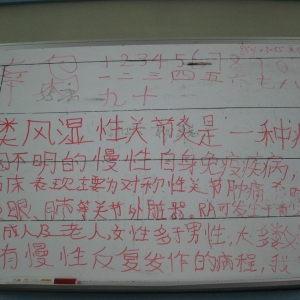 1 2 3 4 5 6 7
一 二 三 四 五 六 七 八
九 十
类风湿性关节炎是一种病
因不明的慢性自身免疫疾病,
临床表现主要为对称性关节肿痛
及眼、肺等关节外脏器。RA可发生于
成人及老人,女性多于男性,大多数
有慢性反复发作的病程,我